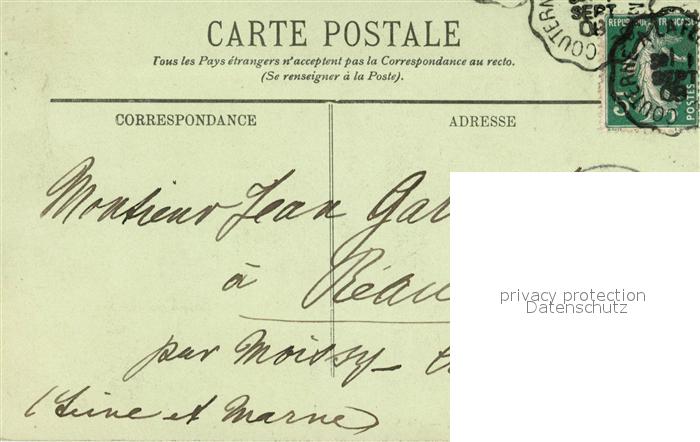 CARTE POSTALE
Tous les Pays étrangers n'acceptent pas la Correspondance au recto.
(Se renseigner à la Poste).
CORRESPONDANCE
ADRESSE
SEPT
09
RÉPUBLIQUE FRANÇAISE
POSTES
SEPT
09
Monsieur Jean
à Réau
par Moissy
(Seine et Marne)
privacy protection
Datenschutz